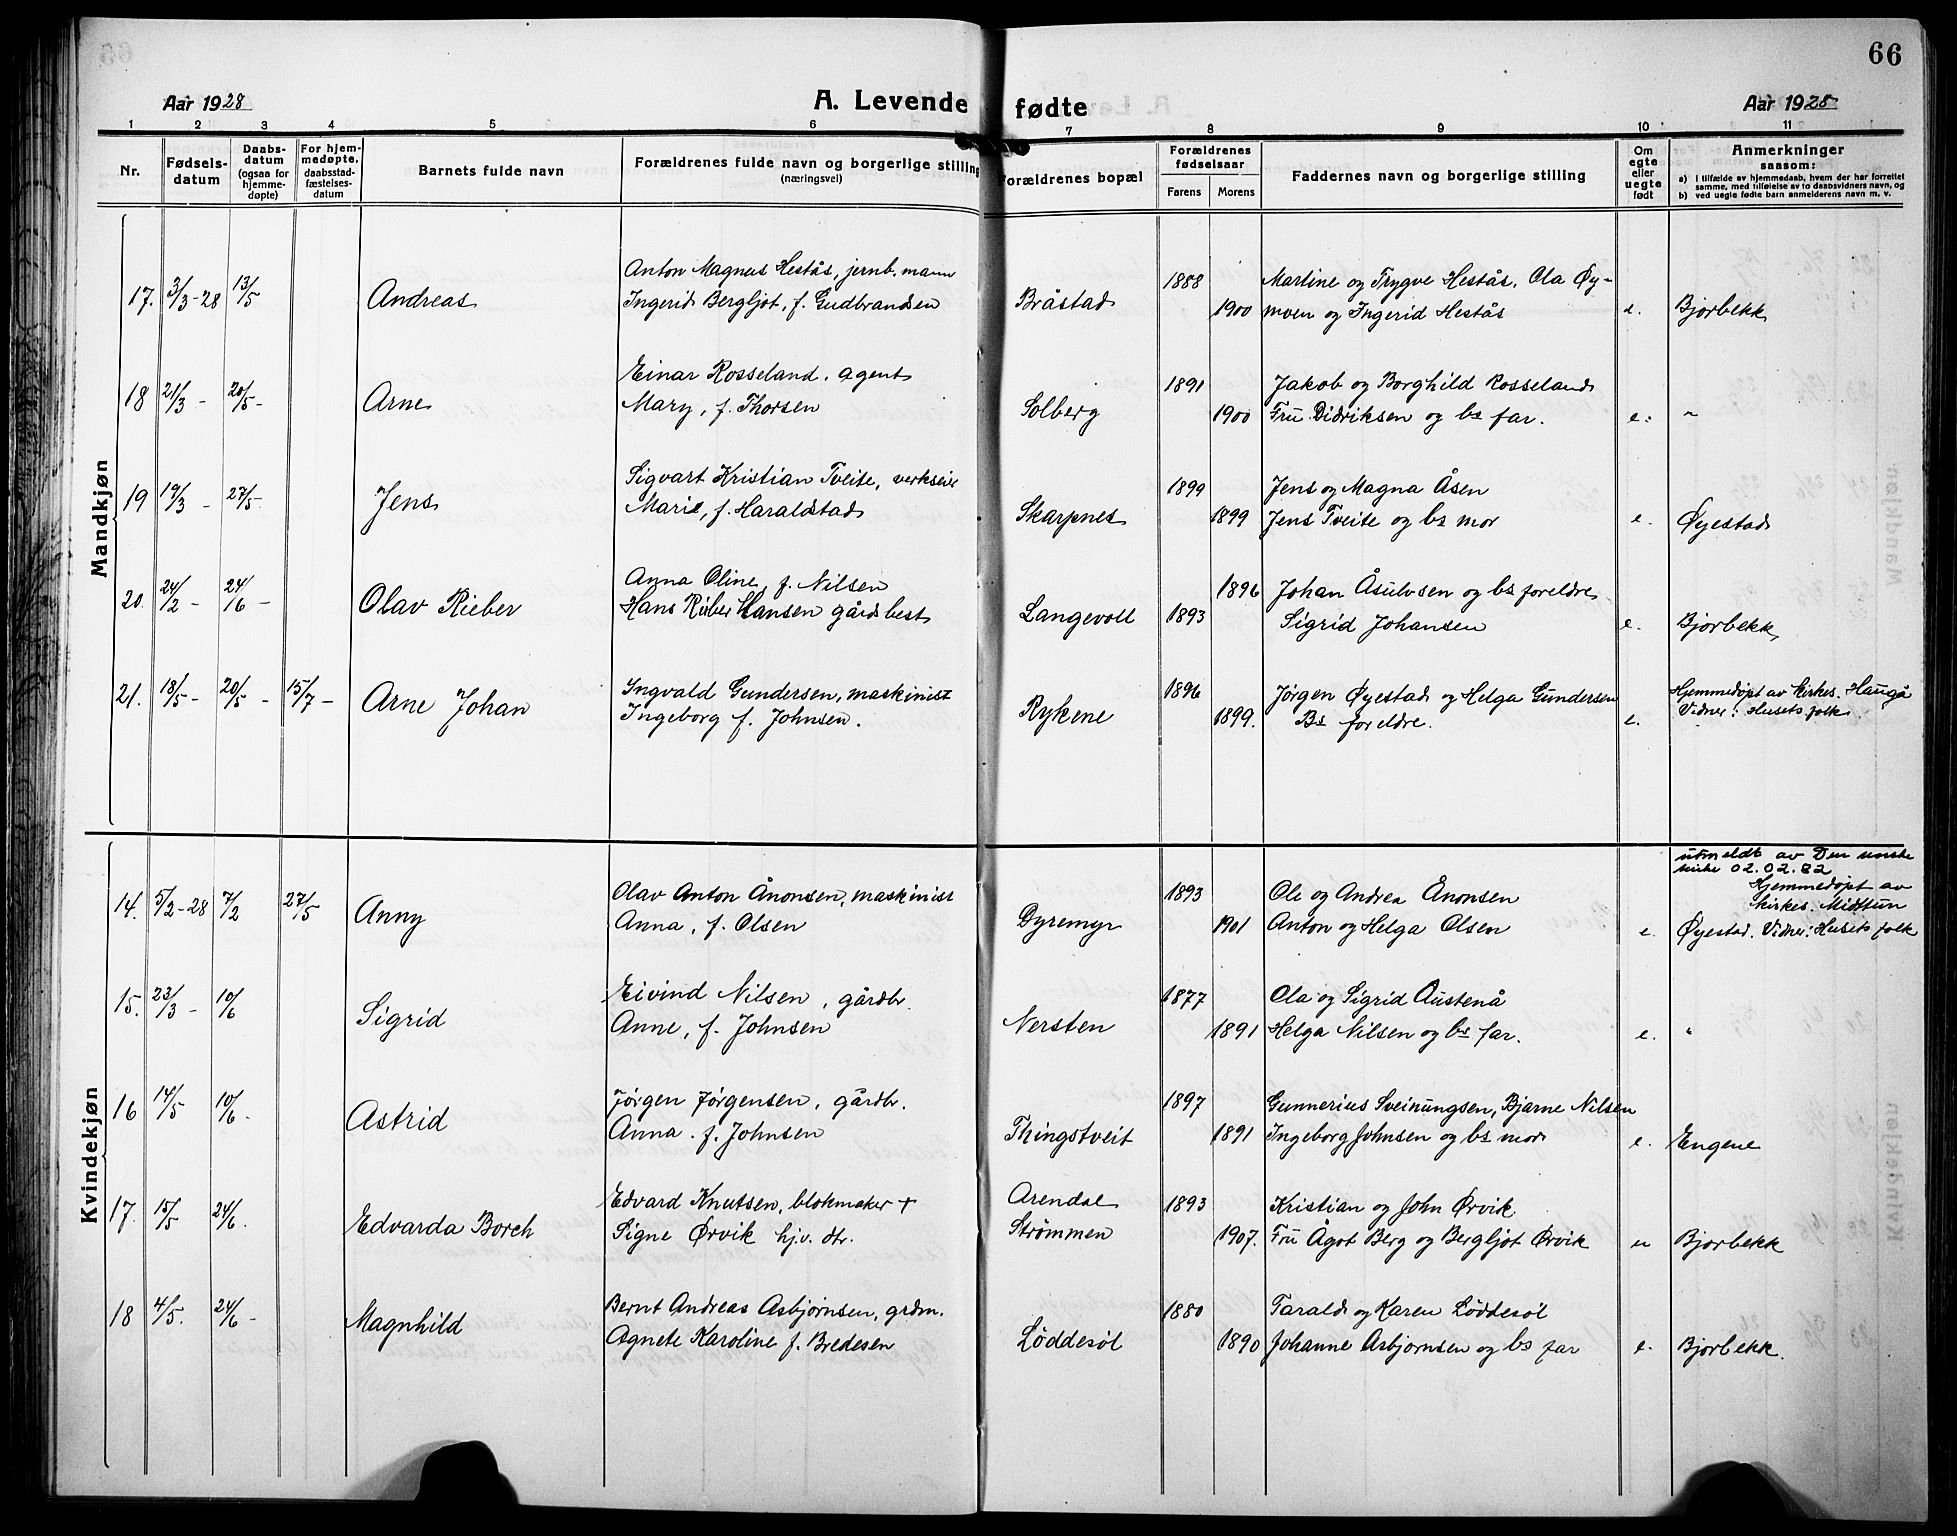 66
Aar 1928
A. Levende fødte
Aar 1928
1 2 3 4 5 6 7 8 9 10 11
Nr.
Fødsels-
datum
Daabs-
datum
(ogsaa for
hjemme-
døpte)
For hjem-
medøpte,
daabsstad-
fæstelses-
datum
Barnets fulde navn
Forældrenes fulde navn og borgerlige stilling
(næringsvei)
Forældrenes bopæl
Forældrenes
fødselsaar
Farens Morens
Faddernes navn og borgerlige stilling
Om
egte
eller
uegte
født
Anmerkninger
saasom:
a) i tilfælde av hjemmedaab, hvem der har forrettet
samme, med tilføielse av to daabsvidners navn, og
b) ved uegte fødte barn anmelderens navn m. v.
Mandkjøn
Anton Magnus Hestås, jernb. mann 1888 Martine og Trygve Hestås. Ola Øy-
17. 3/3-28 13/5 Andreas Ingerid Bergljot, f. Gudbrandsen Bråstad 1900 moen og Ingerid Hestås e. Bjorbekk
Einar Rosseland. agent 1891 Jakob og Borghild Rosseland
18 21/3 - 20/5 - Arne Mary, f. Thorsen Solberg 1900 Fru Didriksen og bs far. e. "
Sigvart Kristian Tveite, verkseier 1899 Jens og Magna Åsen
19 19/3 - 27/5. Jens Marie, f. Haraldstad Skarpnes 1899 Jens Tveite og bs mor e. Øyestad
Anna Oline, f. Nilsen 1896 Johan Åsulvsen og bs foreldre
20. 24/2 - 24/6 - Olav Rieber Hans Rieber Hansen gårdsbest Langevoll 1893 Sigrid Johansen e. Bjorbekk
Ingvald Gundersen, maskinist 1896 Jørgen Øyestad og Helga Gundersen Hjemmedøpt av kirkes. Haugå
21. 18/5 - 20/5 - 15/7 - Arne Johan Ingeborg f. Johnsen. Rykene 1899. Bs foreldre. e. Vidner: Husets folk.
Kvindekjøn
utmeldt av Den norske
kirke 02.02.82
Olav Anton Ånonsen, maskinist 1893 Ole og Andrea Ånonsen Hjemmedøpt av
kirkes. Midttun
14. 5/2-28 7/2 27/5 Anny Anna, f. Olsen Dyremyr 1901 Anton og Helga Olsen e. Øyestad. Vidner: Husets folk
Eivind Nilsen, gårdbr. 1877 Ola og Sigrid Austenå
15. 23/3 - 10/6 Sigrid Anne, f. Johnsen Nersten 1891 Helga Nilsen og bs far. e. "
Jørgen Jørgensen, gårdbr. 1897 Gunnerius Sveinungsen, Bjarne Nilsen
16 14/5 10/6. Astrid Anna. f. Johnsen Thingstveit 1891 Ingeborg Johnsen og bs mor e. Engene
Edvard Knutsen, blokmaker + Arendal 1893 Kristian og John Ørvik
17. 15/5 24/6. Edvarda Borch Signe Ørvik hj.v. dtr. Strømmen 1907. Fru Ågot Berg og Bergljot Ørvik u Bjorbekk
Bernt Andreas Asbjørnsen, grdm. 1880 Tarald og Karen Løddesøl
18 4/5. 24/6 - Magnhild Agnete Karoline f. Bredesen Løddesøl 1890 Johanne Asbjørnsen og bs far e. Bjorbekk.